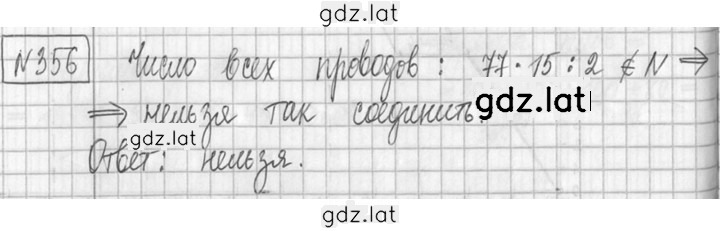 gdz.lat
№356 Число всех проводов: 77·15:2 ∉ N ⇒
⇒ нельзя так соединить.
gdz.lat
gdz.lat
Ответ: нельзя.
gdz.lat